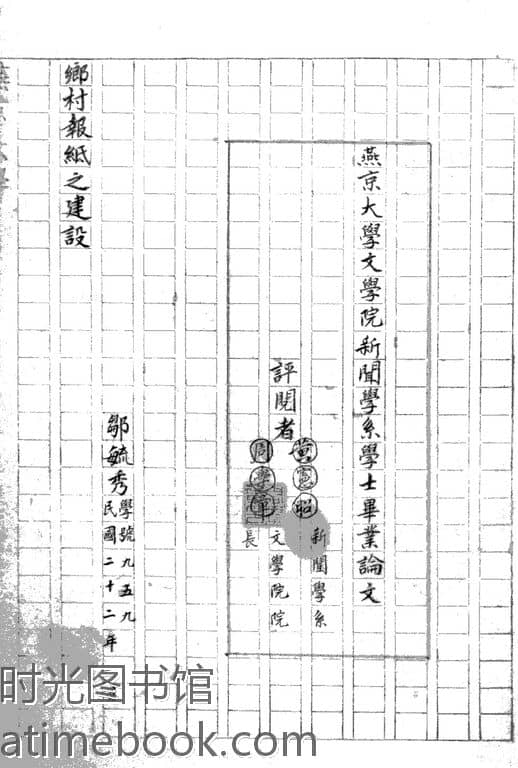 燕京大學文學院新聞學系學士畢業論文
評閱者
黃憲昭
新聞學系
周學章
文學院院
長
鄒毓秀 學號九五九
民國二十二年
鄉村報紙之建設
时光图书馆
atimebook.com